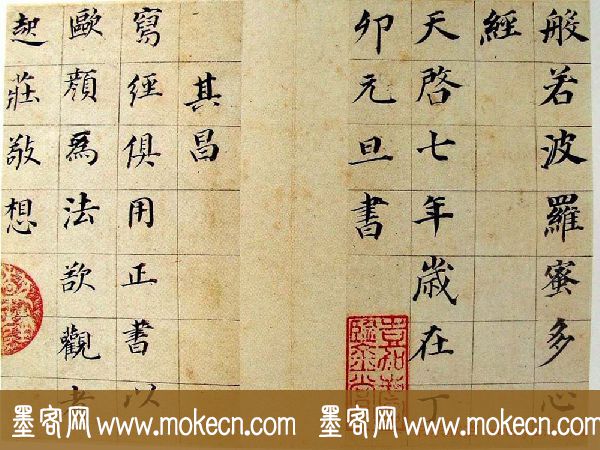 般若波羅蜜多心
經
天啓七年歲在丁
卯元旦書
其昌
寫經俱用正書以
歐顏爲法欲觀者
起莊敬想
墨客网 www.mokecn.com
墨客网 www.mokecn.com